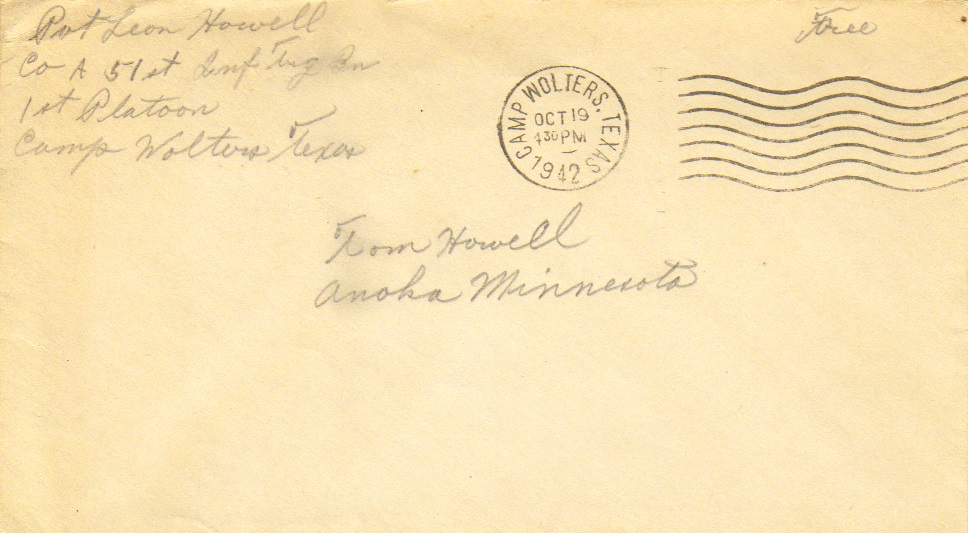 Pvt Leon Howell
Co A 51st Inf Trg Bn
1st Platoon
Camp Wolters Texas
Free
CAMP WOLTERS, TEXAS
OCT 19
4 30 PM
1942
Tom Howell
Anoka Minnesota